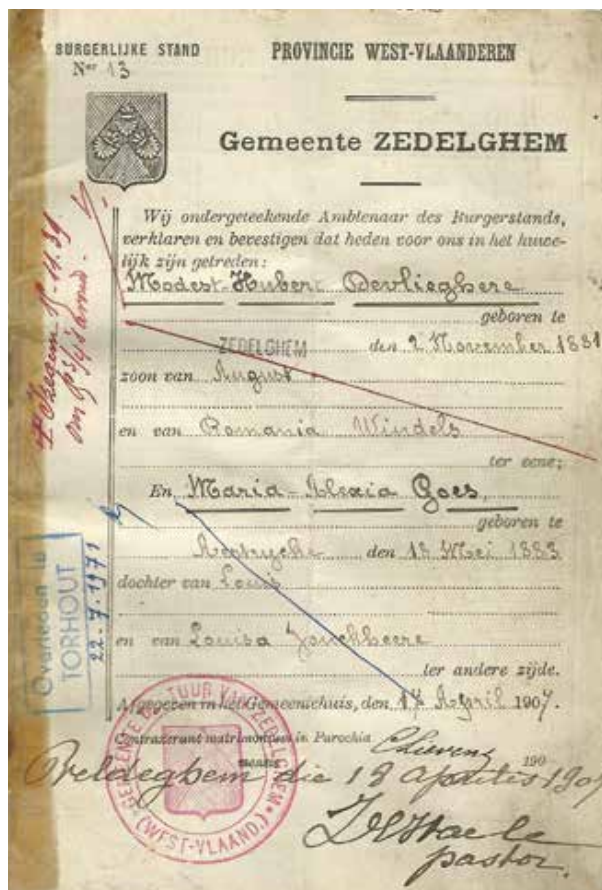 BURGERLIJKE STAND
Nr 13
PROVINCIE WEST-VLAANDEREN
Gemeente ZEDELGHEM
Wij ondergeteekende Ambtenaar des Burgerstands,
verklaren en bevestigen dat heden voor ons in het huwe-
lijk zijn getreden:
Modest-Hubert Devlieghere
geboren te
ZEDELGHEM den 2 November 1881
zoon van August
en van Romania Windels
ter eene;
En Maria-Alexia Goes,
geboren te
Aertrycke den 18 Mei 1883
dochter van Louis
en van Louisa
ter andere zijde.
Afgegeven in het Gemeentehuis, den 17 April 1907.
Contraxerunt matrimonium in Parochia
mensis 190
die 18 Aprilis 1907
pastor.
GEMEENTE BESTUUR VAN ZEDELGHEM
(WEST-VLAAND.)
Overleden te
TORHOUT
22.7.1971